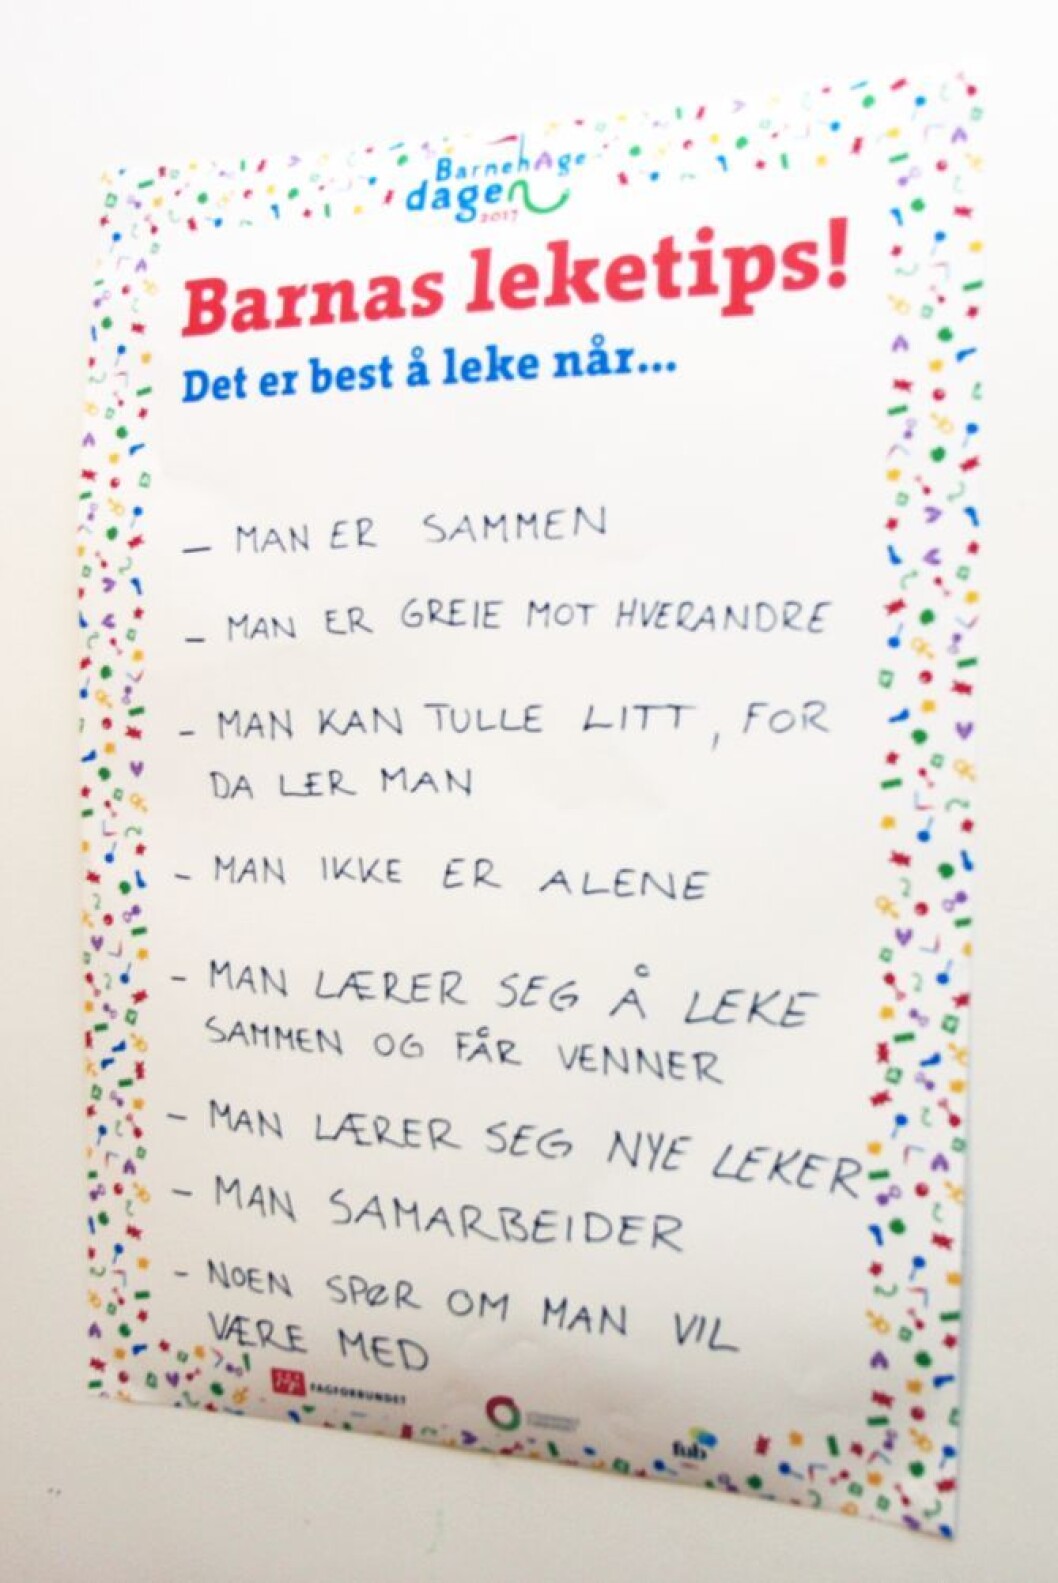 BarnehAge
dagen
2017
Barnas leketips!
Det er best å leke når...
– MAN ER SAMMEN
– MAN ER GREIE MOT HVERANDRE
– MAN KAN TULLE LITT, FOR
DA LER MAN
– MAN IKKE ER ALENE
– MAN LÆRER SEG Å LEKE
SAMMEN OG FÅR VENNER
– MAN LÆRER SEG NYE LEKER
– MAN SAMARBEIDER
– NOEN SPØR OM MAN VIL
VÆRE MED
FAGFORBUNDET
fub